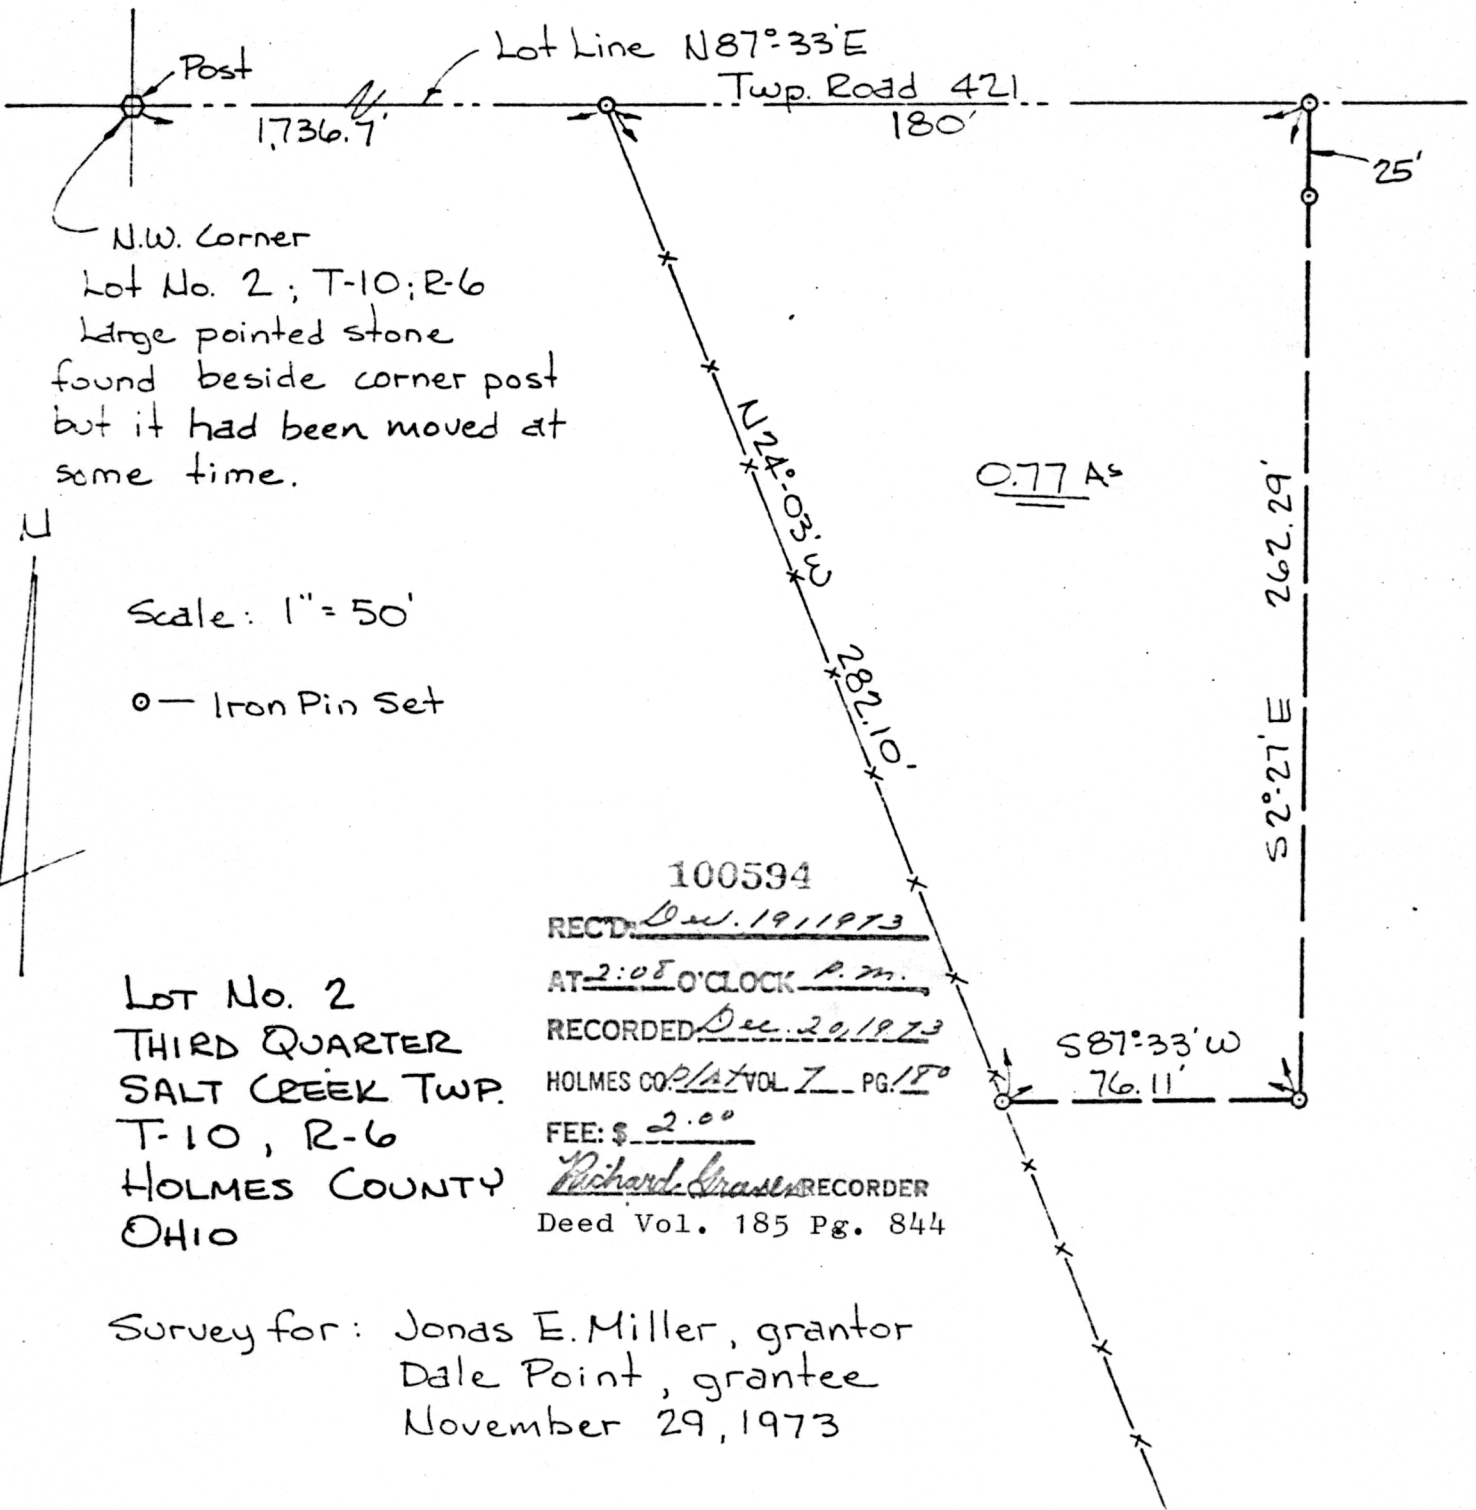 Post
Lot Line N87°-33'E
Twp. Road 421
1,736.7'
180'
25'
N.W. Corner
Lot No. 2; T-10; R-6
Large pointed stone
found beside corner post
but it had been moved at
some time.
N
N24°-03'W
282.10'
0.77 As
S2°-27'E 262.29'
Scale: 1"=50'
Iron Pin Set
S87°-33'W
76.11'
100594
REC'D: Dec. 19, 1973
AT 2:08 O'CLOCK P.M.
RECORDED Dec. 20, 1973
HOLMES CO. Plat VOL 7 PG. 180
FEE: $ 2.00
Richard RECORDER
Deed Vol. 185 Pg. 844
LOT No. 2
THIRD QUARTER
SALT CREEK TWP.
T-10, R-6
HOLMES COUNTY
OHIO
Survey for: Jonas E. Miller, grantor
Dale Point, grantee
November 29, 1973